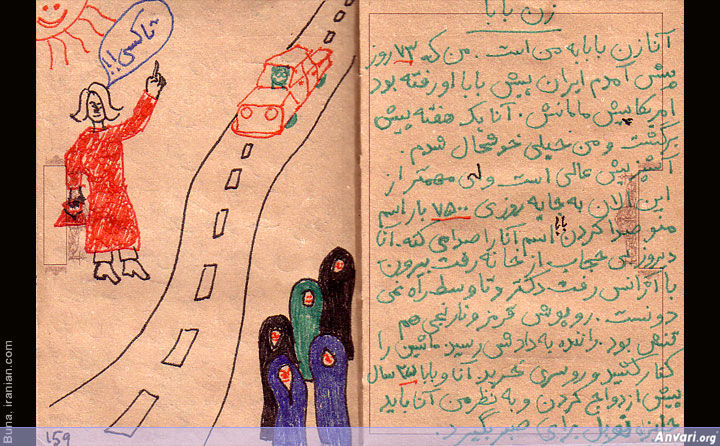 تاکسی!!
زن بابا
آنا زن بابا به من است. من که ۷۳ روز
پیش آمدم ایران پیش بابا او رفته بود
امریکا پیش مامانش. آنا یک هفته پیش
برگشت و من خیلی خوشحال شدم.
آشپزیش عالی است ولی مهمتر از
این الان به جایه روزی ۷۵۰۰ بار اسم
منو صدا کردن بابا اسم آنا را صدا می کنه. آنا
دیروز بی حجاب از خانه رفت بیرون
با آژانس رفت دکتر و تا وسط راه نمی
دونست. روپوشی قرمز و نارنجی هم
تنش بود. راننده به دادش رسید ماشین را
کنار کشید و روسری خرید. آنا و بابا ۲۵ سال
پیش ازدواج کردن و به نظر من آنا باید
جایزه نوبل برای صبر بگیرد.
159
Buna. iranian.com
Anvari.org